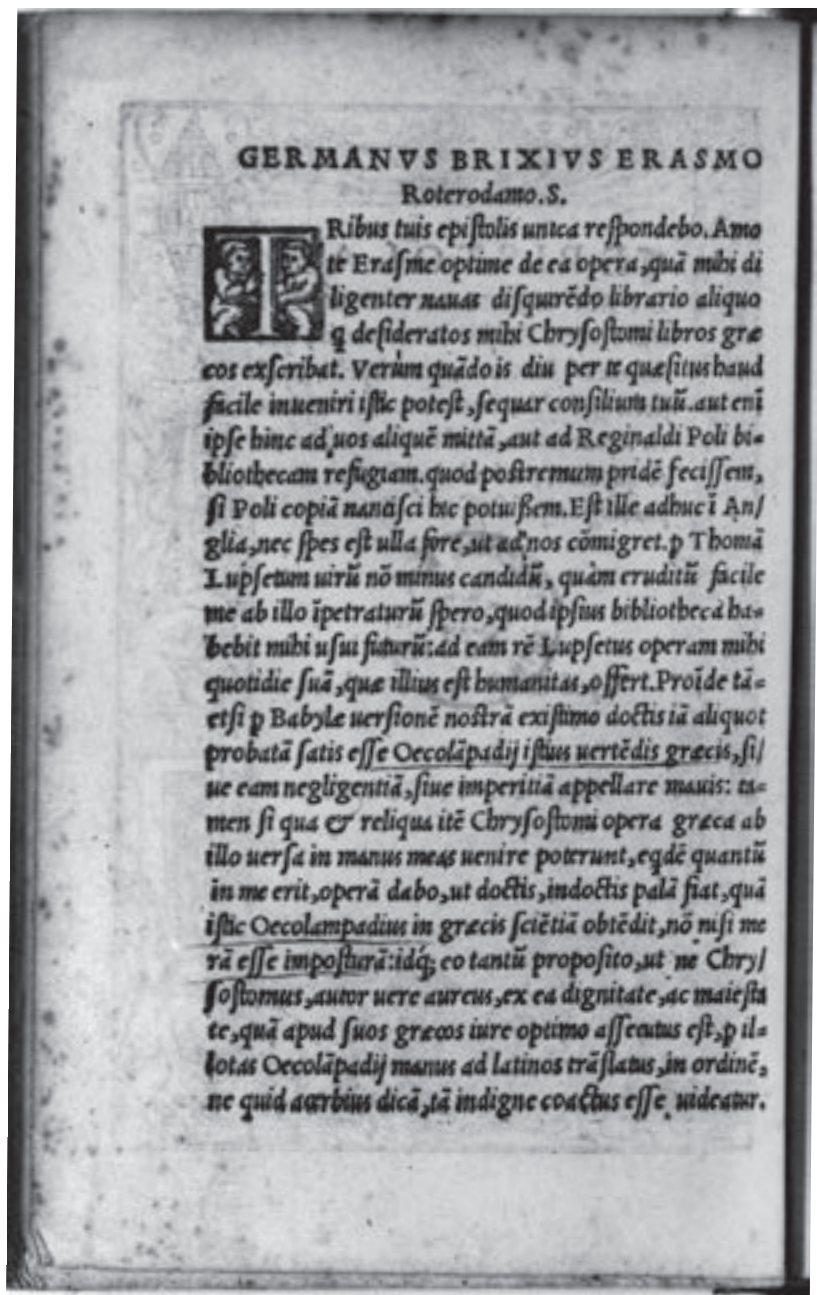 GERMANVS BRIXIVS ERASMO
Roterodamo.S.
TRibus tuis epistolis unica respondebo. Amo
te Erasme optime de ea opera, quã mihi di
ligenter nauas disquirẽdo librario aliquo
q desideratos mihi Chrysostomi libros græ
cos exscribat. Verùm quãdo is diu per te quæsitus haud
facile inueniri istic potest, sequar consilium tuũ. aut enĩ
ipse hinc ad uos aliquẽ mittã, aut ad Reginaldi Poli bi=
bliothecam refugiam. quod postremum pridẽ fecissem,
si Poli copiã nancisci hic potuissem. Est ille adhuc ĩ An/
glia, nec spes est ulla fore, ut ad nos cõmigret. p Thomã
Lupsetum uirũ nõ minus candidũ, quàm eruditũ facile
me ab illo ĩpetraturũ spero, quod ipsius bibliotheca ha=
bebit mihi usui futurũ: ad eam rẽ Lupsetus operam mihi
quotidie suã, quæ illius est humanitas, offert. Proĩde tã=
etsi p Babylæ uersionẽ nostrã existimo doctis iã aliquot
probatã satis esse Oecolãpadij istius uertẽdis græcis, si/
ue eam negligentiã, siue imperitiã appellare mauis: ta=
men si qua & reliqua itẽ Chrysostomi opera græca ab
illo uersa in manus meas uenire poterunt, eqdẽ quantũ
in me erit, operã dabo, ut doctis, indoctis palã fiat, quã
istic Oecolampadius in græcis sciẽtiã obtẽdit, nõ nisi me
rã esse imposturã: idq; eo tantũ proposito, ut ne Chry/
sostomus, autor uere aureus, ex ea dignitate, ac maiesta
te, quã apud suos græcos iure optimo assecutus est, p il=
lotas Oecolãpadij manus ad latinos trãslatus, in ordinẽ,
ne quid acerbius dicã, tã indigne coactus esse uideatur.